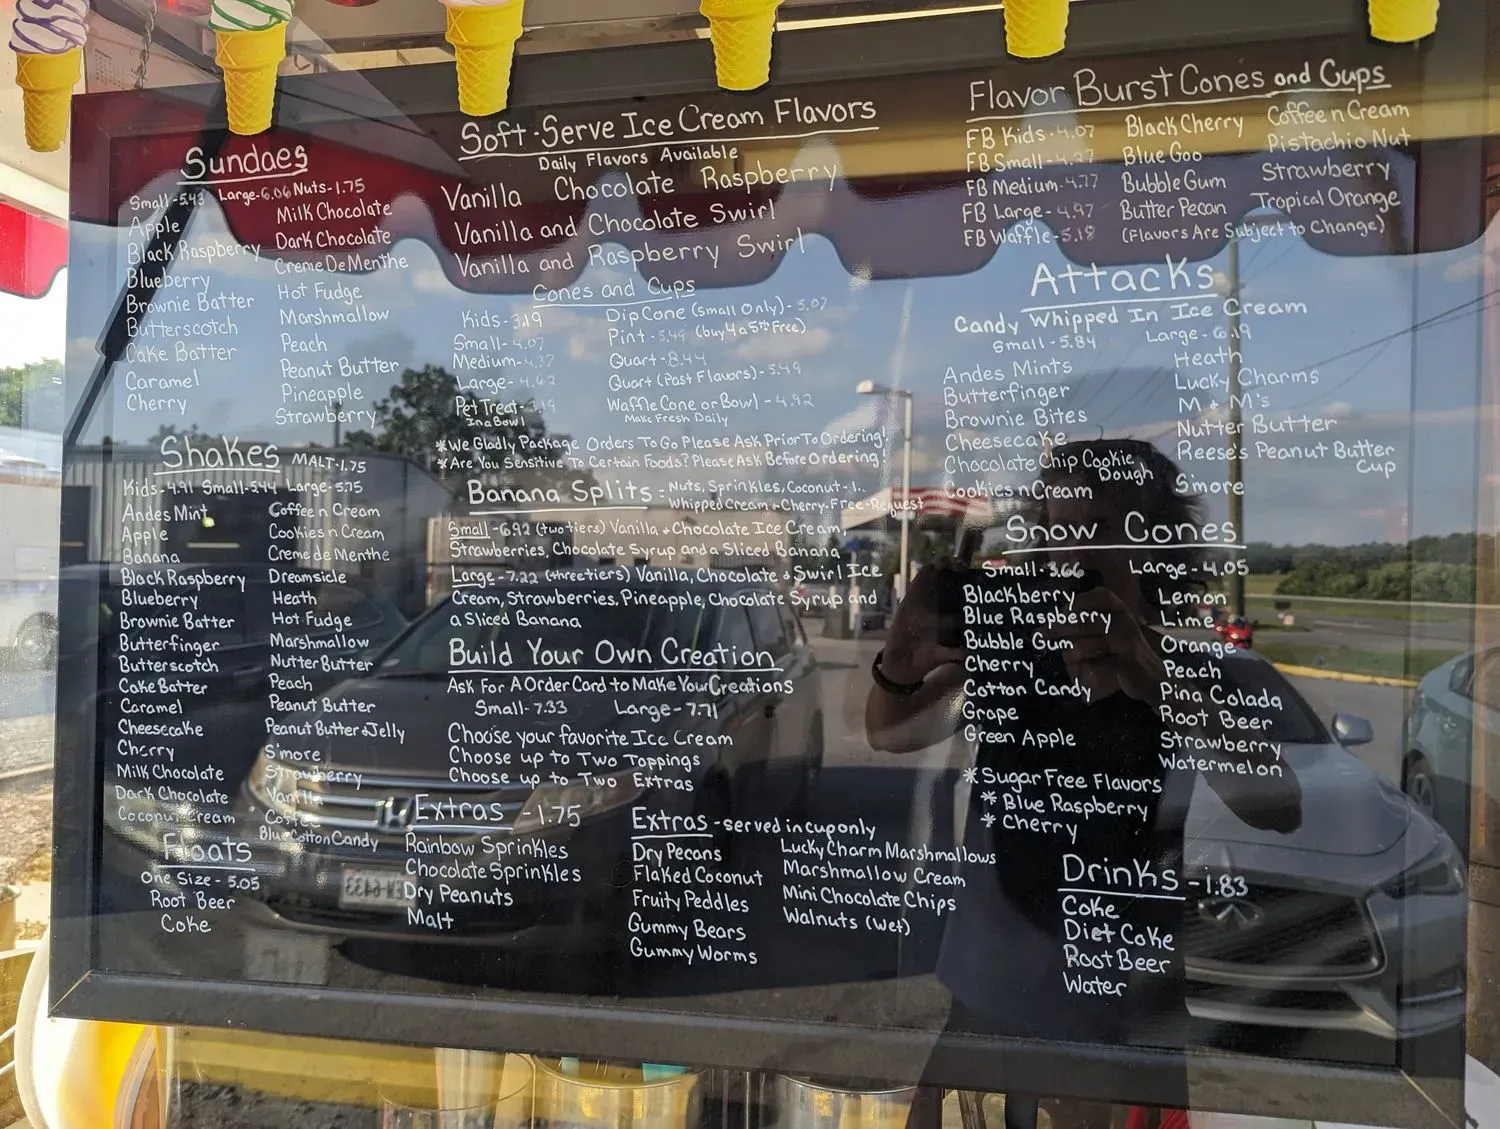 Sundaes
Small-5.43 Large-6.06 Nuts-1.75
Apple
Black Raspberry
Blueberry
Brownie Batter
Butterscotch
Cake Batter
Caramel
Cherry
Milk Chocolate
Dark Chocolate
Creme De Menthe
Hot Fudge
Marshmallow
Peach
Peanut Butter
Pineapple
Strawberry
Shakes MALT-1.75
Kids-4.91 Small-5.44 Large-5.75
Andes Mint
Apple
Banana
Black Raspberry
Blueberry
Brownie Batter
Butterfinger
Butterscotch
Cake Batter
Caramel
Cheesecake
Cherry
Milk Chocolate
Dark Chocolate
Coconut Cream
Coffee n Cream
Cookies n Cream
Creme de Menthe
Dreamsicle
Heath
Hot Fudge
Marshmallow
Nutter Butter
Peach
Peanut Butter
Peanut Butter & Jelly
S'more
Strawberry
Vanilla
Coffee
Blue Cotton Candy
Floats
One Size - 5.05
Root Beer
Coke
Soft-Serve Ice Cream Flavors
Daily Flavors Available
Vanilla Chocolate Raspberry
Vanilla and Chocolate Swirl
Vanilla and Raspberry Swirl
Cones and Cups
Kids-3.19
Small-4.07
Medium-4.37
Large-4.62
Pet Treat-3.19
In a Bowl
Dip Cone (Small Only)-5.07
Pint-5.49 (buy 4 a 5th Free)
Quart-8.44
Quart (Past Flavors)-5.49
Waffle Cone or Bowl-4.92
Make Fresh Daily
*We Gladly Package Orders To Go Please Ask Prior To Ordering!
*Are You Sensitive To Certain Foods? Please Ask Before Ordering!
Banana Splits: Nuts, Sprinkles, Coconut-1..
Whipped Cream & Cherry-Free-Request
Small-6.92 (two tiers) Vanilla & Chocolate Ice Cream,
Strawberries, Chocolate Syrup and a Sliced Banana
Large-7.22 (three tiers) Vanilla, Chocolate & Swirl Ice
Cream, Strawberries, Pineapple, Chocolate Syrup and
a Sliced Banana
Build Your Own Creation
Ask For A Order Card to Make Your Creations
Small-7.33 Large-7.71
Choose your favorite Ice Cream
Choose up to Two Toppings
Choose up to Two Extras
Extras -1.75
Rainbow Sprinkles
Chocolate Sprinkles
Dry Peanuts
Malt
Extras -served in cup only
Dry Pecans
Flaked Coconut
Fruity Peddles
Gummy Bears
Gummy Worms
Lucky Charm Marshmallows
Marshmallow Cream
Mini Chocolate Chips
Walnuts (Wet)
Flavor Burst Cones and Cups
FB Kids-4.07
FB Small-4.27
FB Medium-4.77
FB Large-4.97
FB Waffle-5.18
Black Cherry
Blue Goo
Bubble Gum
Butter Pecan
Coffee n Cream
Pistachio Nut
Strawberry
Tropical Orange
(Flavors Are Subject to Change)
Attacks
Candy Whipped In Ice Cream
Small-5.84 Large-6.19
Andes Mints
Butterfinger
Brownie Bites
Cheesecake
Chocolate Chip Cookie
Dough
Cookies n Cream
Heath
Lucky Charms
M & M's
Nutter Butter
Reese's Peanut Butter
Cup
S'more
Snow Cones
Small-3.66 Large-4.05
Blackberry
Blue Raspberry
Bubble Gum
Cherry
Cotton Candy
Grape
Green Apple
Lemon
Lime
Orange
Peach
Pina Colada
Root Beer
Strawberry
Watermelon
*Sugar Free Flavors
*Blue Raspberry
*Cherry
Drinks -1.83
Coke
Diet Coke
Root Beer
Water